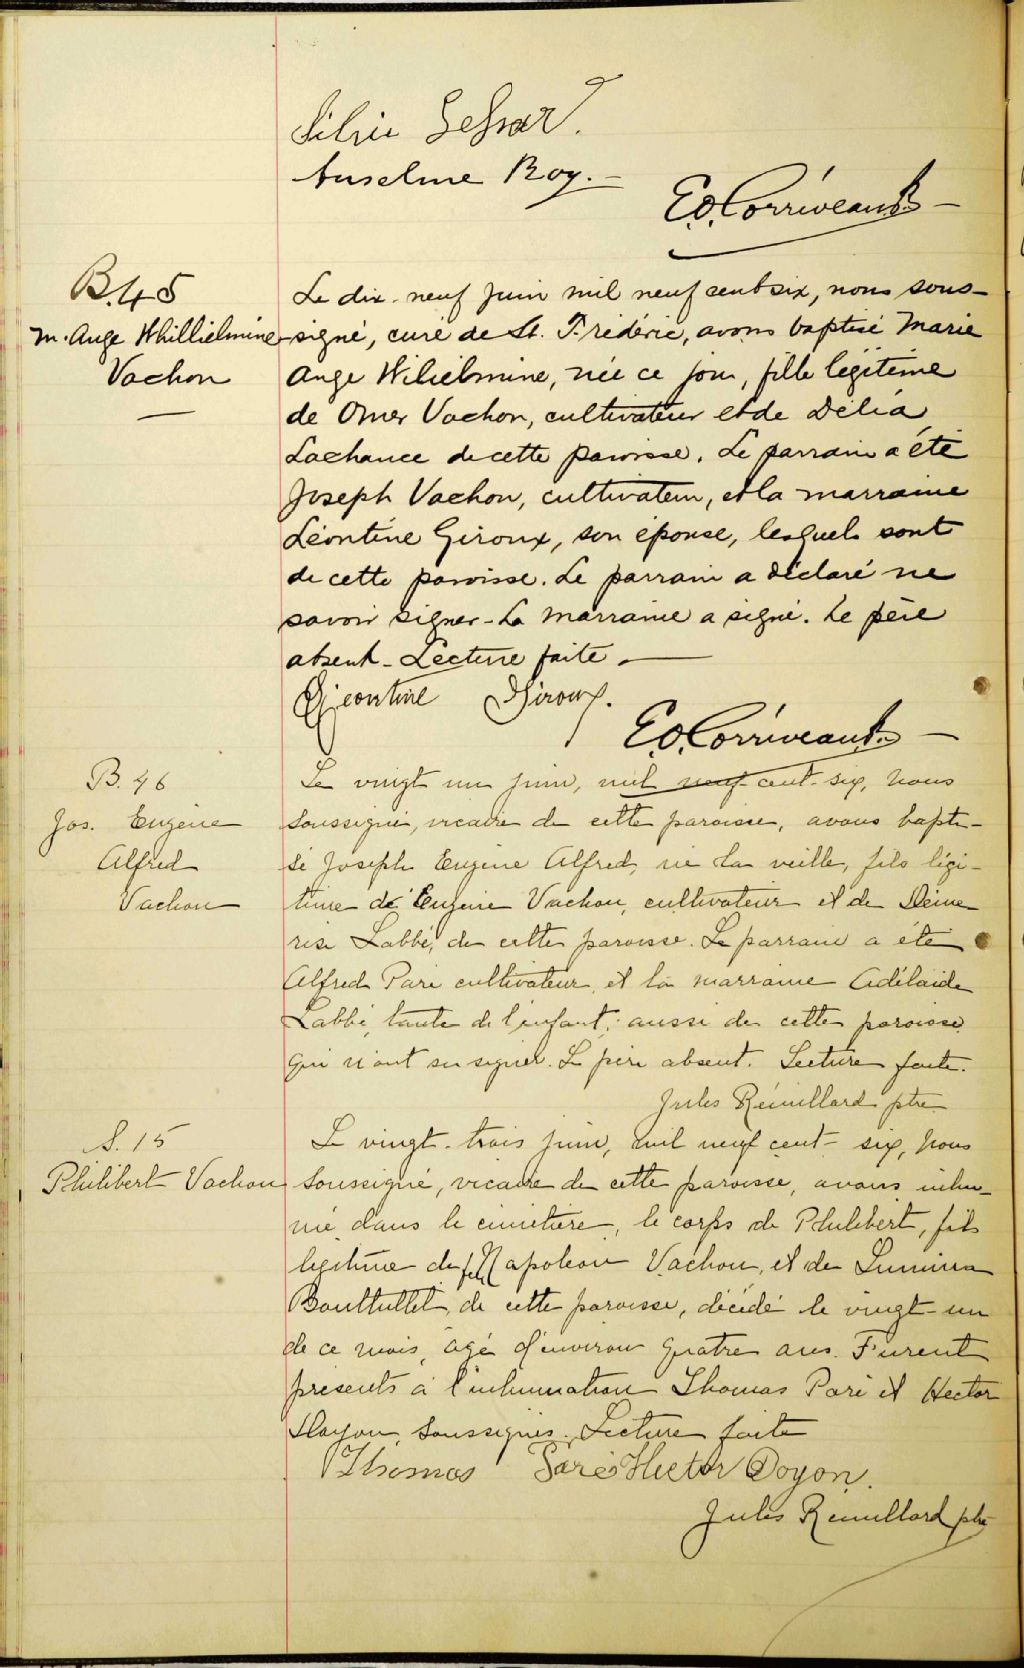 Anselme Roy.
Ed. Corriveau Ptr
B. 45
M. Ange Whillielmine
Vachon
Le dix-neuf juin mil neuf cent six, nous sous-
signé, curé de St. Frédéric, avons baptisé Marie
Ange Wilielmine, née ce jour, fille légitime
de Omer Vachon, cultivateur et de Délia
Lachance de cette paroisse. Le parrain a été
Joseph Vachon, cultivateur, et la marraine
Léontine Giroux, son épouse, lesquels sont
de cette paroisse. Le parrain a déclaré ne
savoir signer - La marraine a signé. Le père
absent - Lecture faite.
Léontine Giroux.
Ed. Corriveau Ptr
B. 46
Jos. Eugène
Alfred
Vachon
Le vingt un juin, mil neuf cent six, nous
soussigné, vicaire de cette paroisse, avons bapti-
sé Joseph Eugène Alfred, né la veille, fils légi-
time de Eugène Vachon, cultivateur et de Déme
rise Labbé, de cette paroisse. Le parrain a été
Alfred Paré cultivateur, et la marraine Adélaïde
Labbé, tante de l'enfant, aussi de cette paroisse
qui n'ont su signer. Le père absent. Lecture faite.
Jules Rémillard ptre
S. 15
Philibert Vachon
Le vingt-trois juin, mil neuf cent-six, nous
soussigné, vicaire de cette paroisse, avons inhu-
mé dans le cimetière, le corps de Philibert, fils
légitime de feu Napoléon Vachon, et de Lumina
de cette paroisse, décédé le vingt-un
de ce mois, âgé d'environ quatre ans. Furent
présents à l'inhumation Thomas Paré et Hector
Doyon, soussignés. Lecture faite
Thomas Paré Hector Doyon.
Jules Rémillard ptre